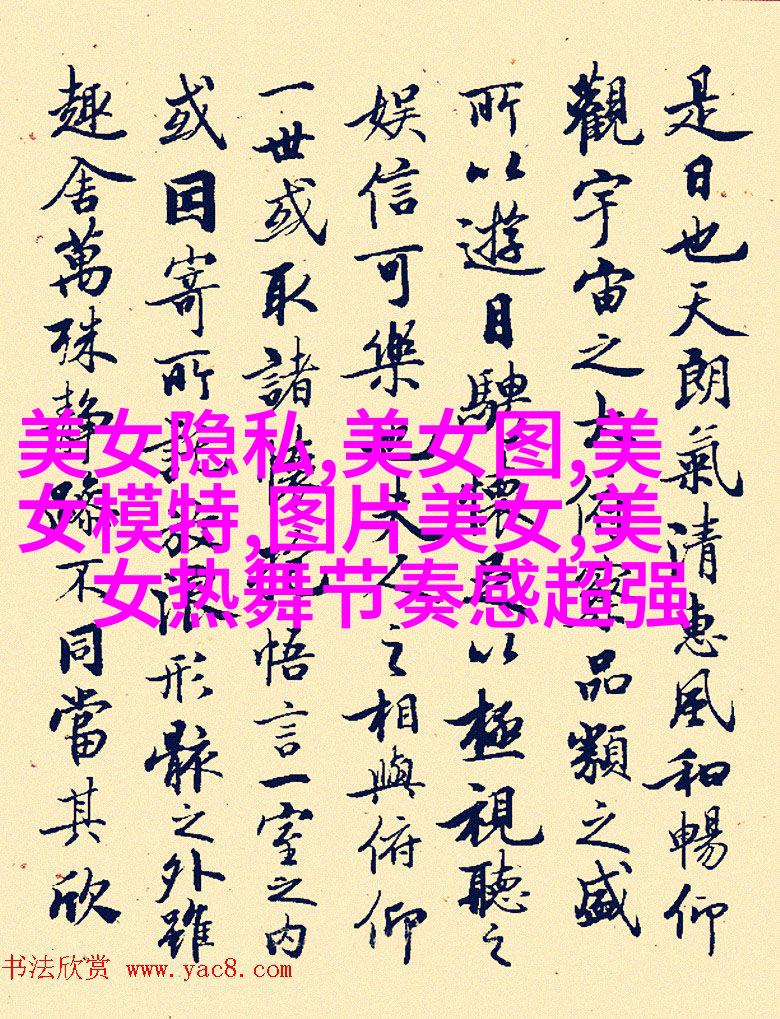 是日也天朗氣清惠風和暢仰
觀宇宙之大俯察品類之盛
所以遊目騁懷足以極視聽之
娛信可樂也夫人之相與俯仰
一世或取諸懷抱悟言一室之内
或因寄所託放浪形骸之外雖
趣舍萬殊靜躁不同當其欣
美女隐私,美女图,美
女模特,图片美女,美
女热舞节奏感超强
书法欣赏 www.yac8.com